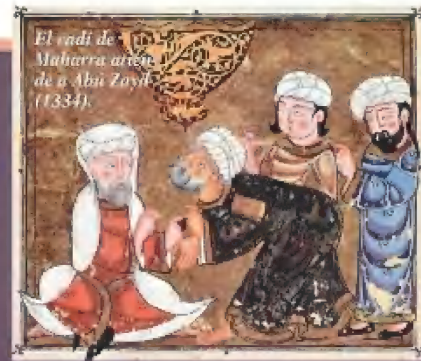 El cadí de
Maharra atien-
de a Abú Zayd
(1334).